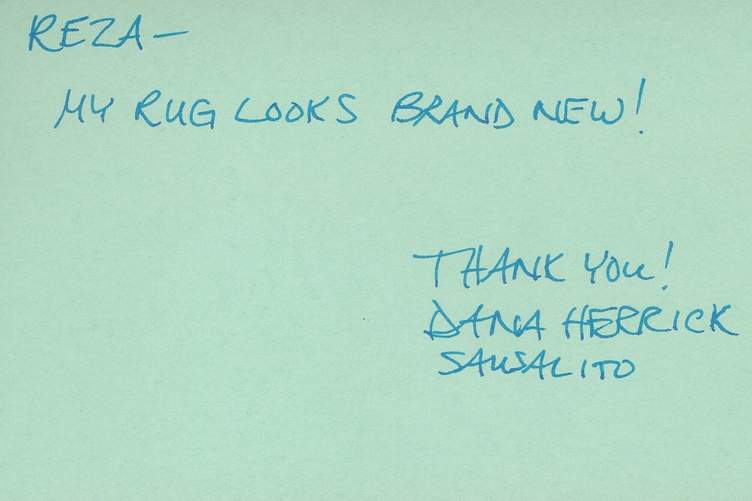 REZA—
MY RUG LOOKS BRAND NEW!
THANK YOU!
DANA HERRICK
SAUSALITO